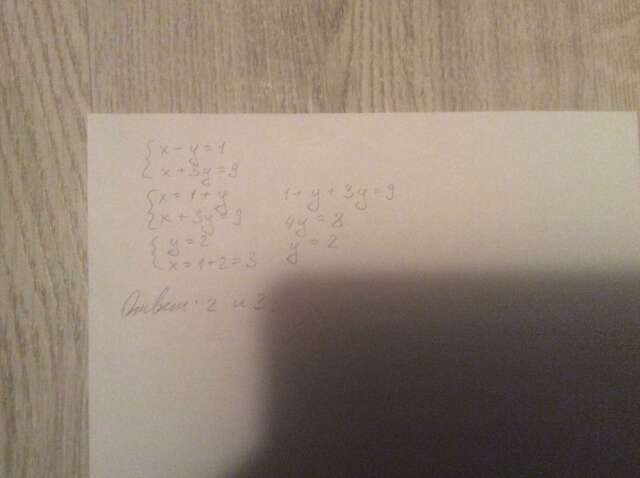 x - y = 1
x + 3y = 9
x = 1 + y
x + 3y = 9
1 + y + 3y = 9
4y = 8
y = 2
y = 2
x = 1 + 2 = 3
Ответ: 2 и 3